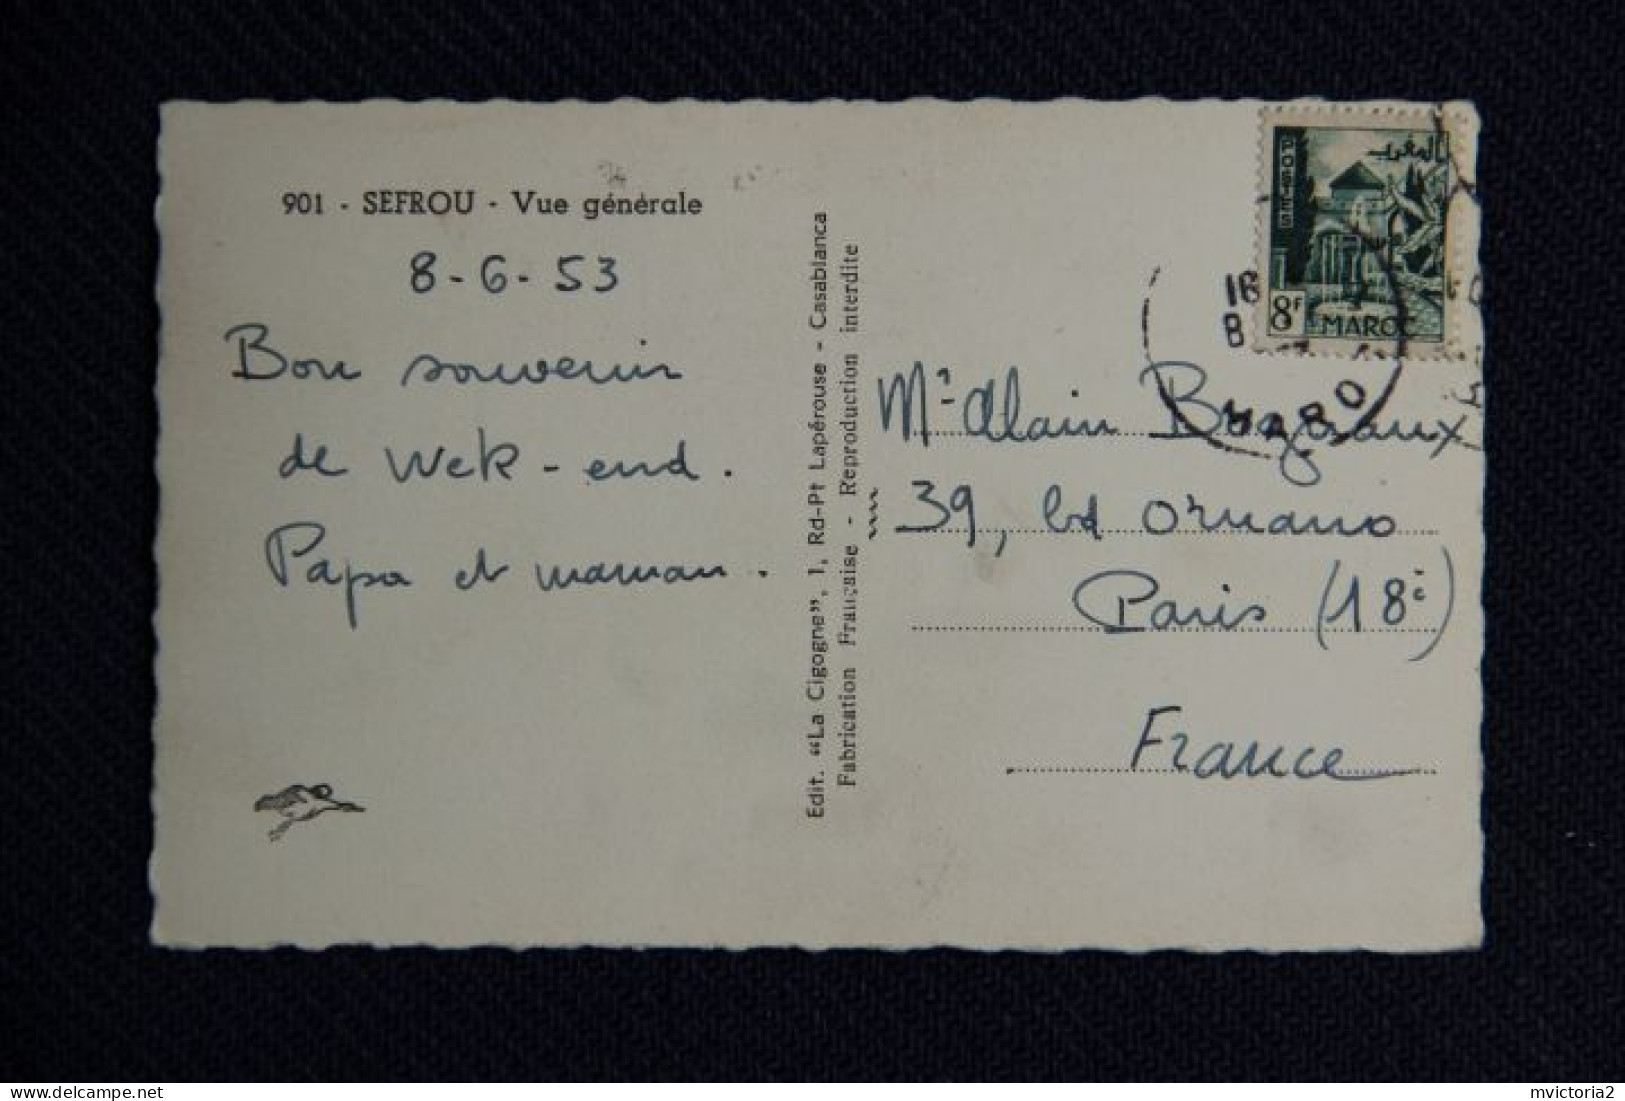 901 - SEFROU - Vue générale
8-6-53
Bon souvenir
de wek-end.
Papa et maman.
Edit. "La Cigogne", 1, Rd-Pt Lapérouse - Casablanca
Fabrication Française - Reproduction interdite
POSTES
المغرب
8F MAROC
18
8
MARO
Mr Alain
39, bd Ornano
Paris (18e)
France
delcampe.net
mvictoria2